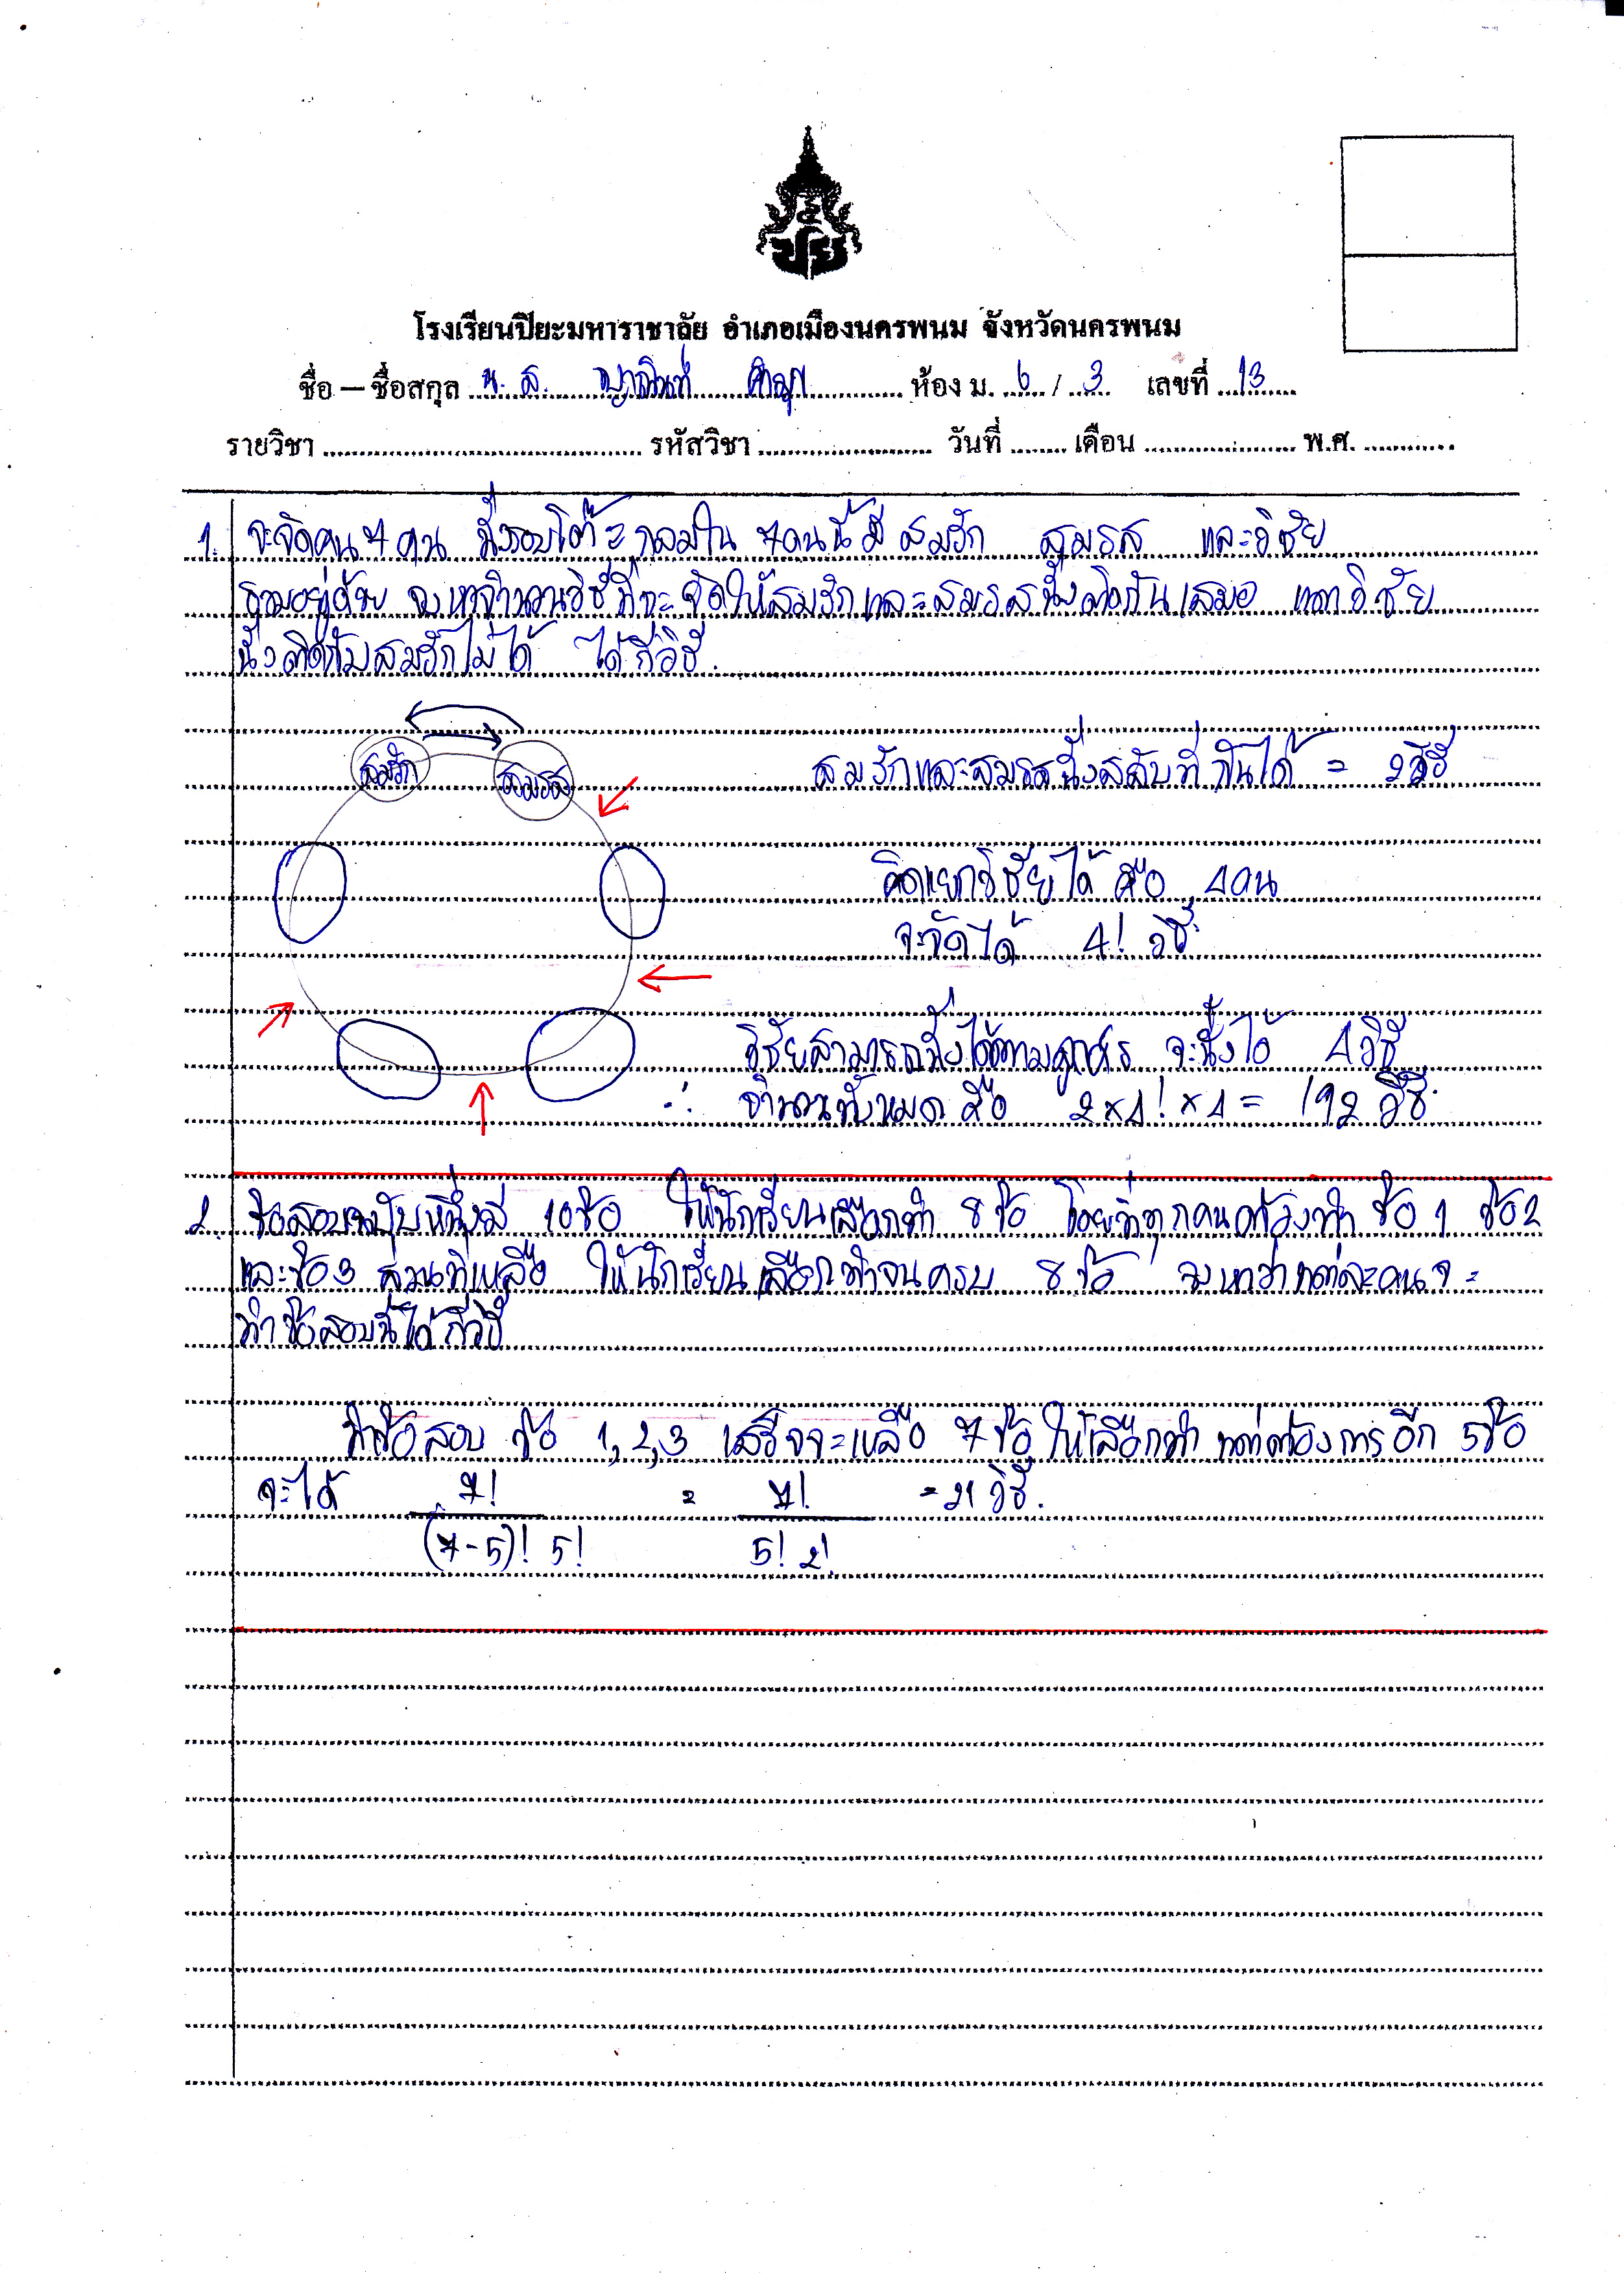 โรงเรียนปิยะมหาราชาลัย อำเภอเมืองนครพนม จังหวัดนครพนม
ชื่อ – ชื่อสกุล น.ส. ห้อง ม. 6 / 3 เลขที่ 13
รายวิชา รหัสวิชา วันที่ เดือน พ.ศ.
1. จะจัดคน 7 คน นั่งรอบโต๊ะกลมใน 7 คนนี้ มี สมรัก สมรส และวิชัย
รวมอยู่ด้วย จงหาจำนวนวิธีที่จะจัดให้สมรักและสมรสนั่งติดกันเสมอ แต่วิชัย
นั่งติดกับสมรักไม่ได้ ได้กี่วิธี
สมรัก สมรส
สมรักและสมรสนั่งสลับที่กันได้ = 2 วิธี
คิดแยกวิชัยได้ คือ 4 คน
จะจัดได้ 4! วิธี
วิชัยสามารถนั่งได้ตามลูกศร จะนั่งได้ 4 วิธี
∴ จำนวนทั้งหมด คือ 2 × 4! × 4 = 192 วิธี
2. ข้อสอบฉบับหนึ่งมี 10 ข้อ ให้นักเรียนเลือกทำ 8 ข้อ โดยที่ทุกคนต้องทำ ข้อ 1 ข้อ 2
และข้อ 3 ส่วนที่เหลือ ให้นักเรียนเลือกทำจนครบ 8 ข้อ จงหาว่าแต่ละคนจะ
ทำข้อสอบนี้ได้กี่วิธี
ทำข้อสอบ ข้อ 1, 2, 3 เสร็จจะเหลือ 7 ข้อ ให้เลือกทำ แต่ต้องการอีก 5 ข้อ
จะได้ 7! = 7! = 21 วิธี.
(7-5)! 5! 5! 2!